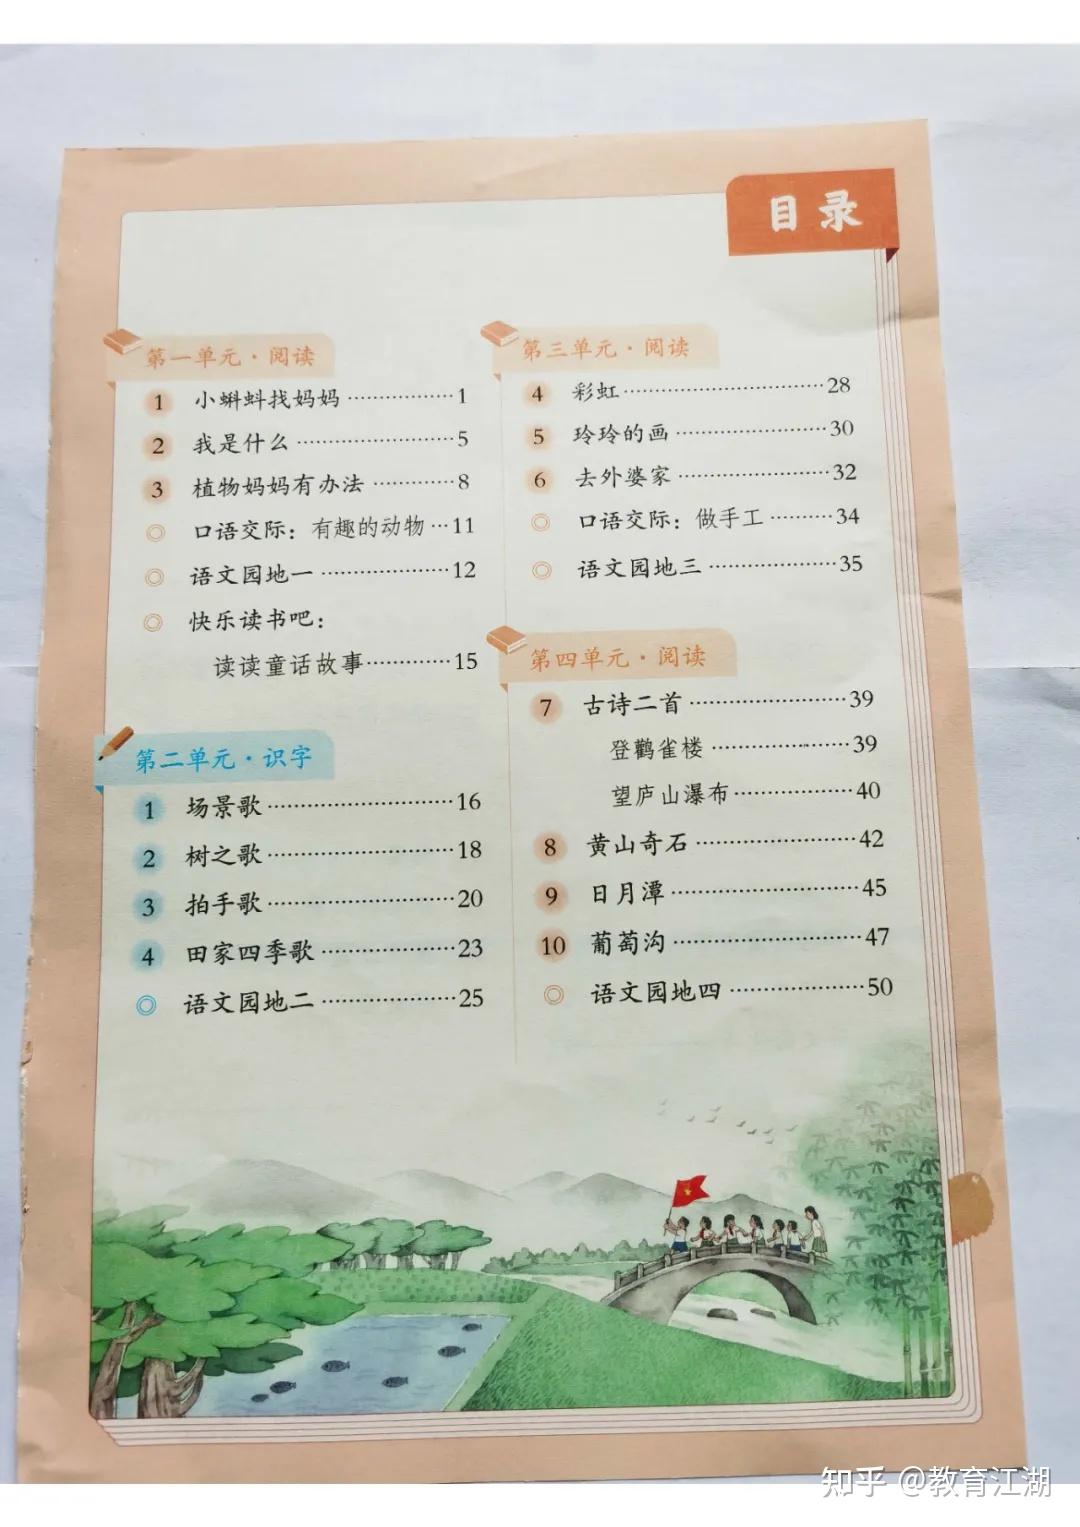 目录
第一单元·阅读
1 小蝌蚪找妈妈………………1
2 我是什么………………5
3 植物妈妈有办法…………8
◎ 口语交际：有趣的动物…11
◎ 语文园地一………………12
◎ 快乐读书吧：
读读童话故事…………15
第二单元·识字
1 场景歌………………16
2 树之歌………………18
3 拍手歌………………20
4 田家四季歌………………23
◎ 语文园地二………………25
第三单元·阅读
4 彩虹………………28
5 玲玲的画………………30
6 去外婆家………………32
◎ 口语交际：做手工………34
◎ 语文园地三………………35
第四单元·阅读
7 古诗二首………………39
登鹳雀楼………………39
望庐山瀑布………………40
8 黄山奇石………………42
9 日月潭………………45
10 葡萄沟………………47
◎ 语文园地四………………50
知乎 @教育江湖